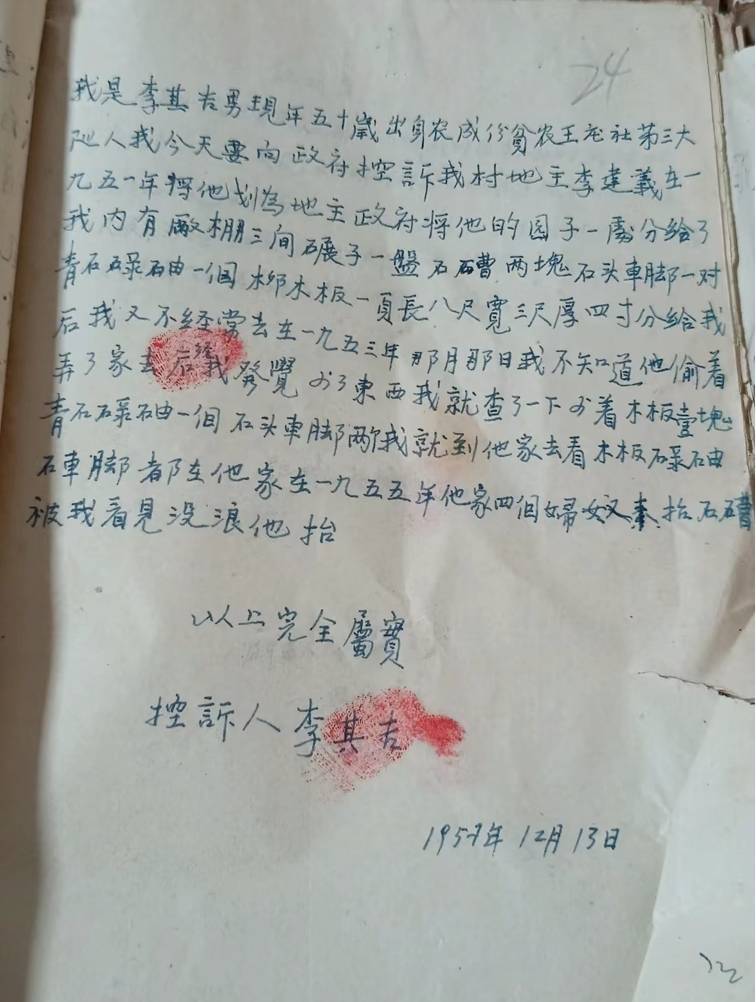 24
我是李其吉男現年五十歲出身农成份贫农王庄社第三大
队人我今天要向政府控訴我村地主李建義在一
九五一年将他划為地主政府将他的园子一處分給了
我内有敞棚三间碾子一盤石磄两塊石头車脚一对
青石碌砫一個柳木板一頁長八尺寬三尺厚四寸分給我
后我又不经常去在一九五三年那月那日我不知道他偷着
弄了家去后经我發覺少了東西我就查了一下少着木板壹塊
青石碌砫一個石头車脚两我就到他家去看木板碌砫
石車脚都在他家在一九五五年他家四個婦女又来抬石磄
被我看見没浪他抬
以上完全屬實
控訴人李其吉
1957年12月13日